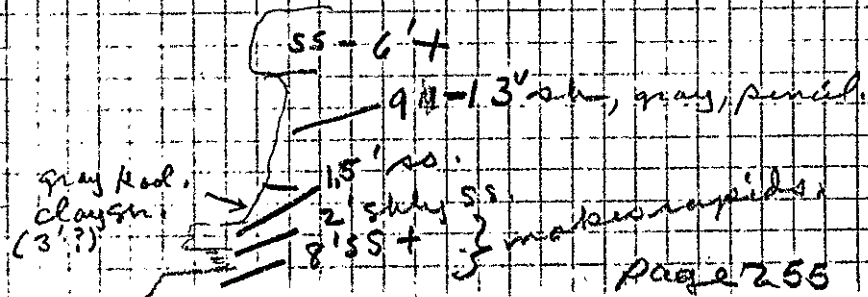 ss - 6'+
9"-13" sh, gray, pencil.
1.5' ss.
gray
clay sh.
(3'?)
2' shly ss.
8' ss + } makes rapids.
Page 255